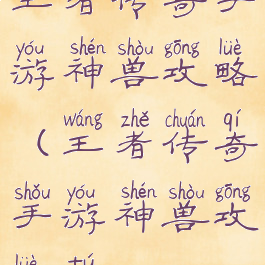 王者传奇手
yóu shén shòu gōng lüè
游神兽攻略
wáng zhě chuán qí
（王者传奇
shǒu yóu shén shòu gōng
手游神兽攻
lüè tú